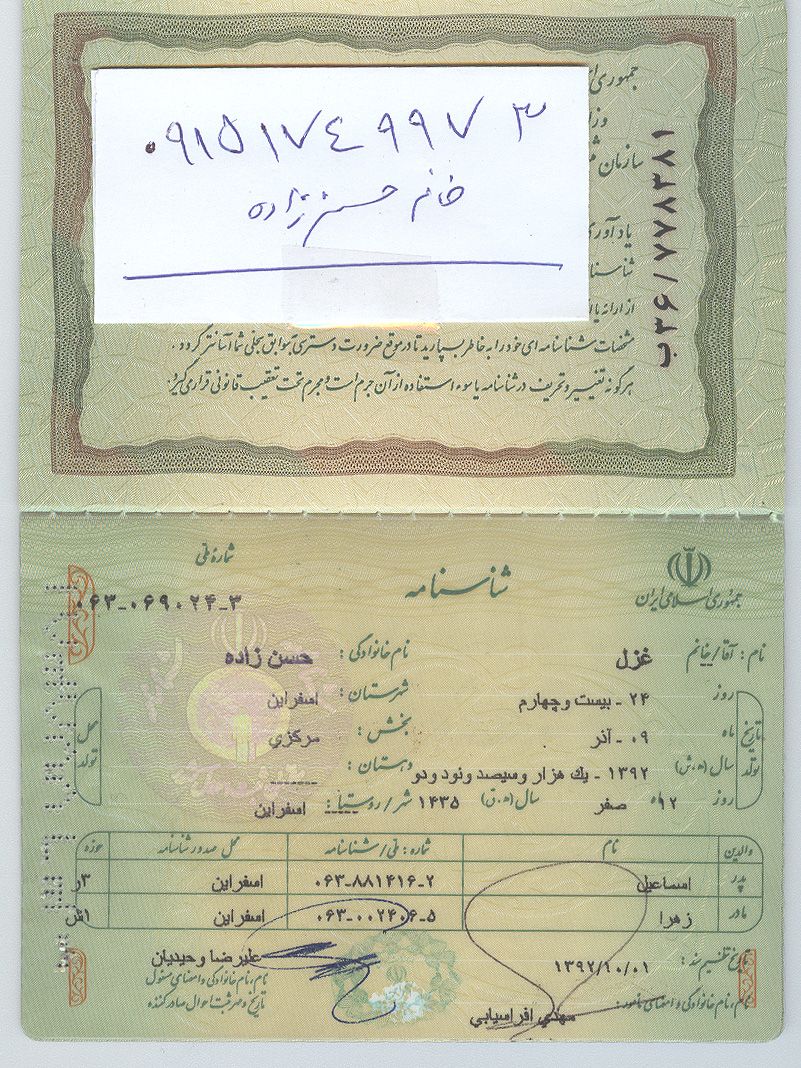 ۰۹۱۵۱۷۴۹۹۷۳
خانم حسن زاده
جمهوری
سازمان
ب۳۶/۷۷۸۳۸۱
یادآوری
مشخصات شناسنامه ای خود را به خاطر بسپارید تا در موقع ضرورت دسترسی به سوابق سجلی شما آسانتر گردد .
هرگونه تغییر و تحریف در شناسنامه یا سوء استفاده از آن جرم است و مجرم تحت تعقیب قانونی قرار می گیرد.
جمهوری اسلامی ایران
شناسنامه
شمارهٔ ملی
۰۶۳-۰۶۹۰۲۴-۳
نام : آقا/خانم غزل نام خانوادگی : حسن زاده
تاریخ تولد
روز ۲۴ - بیست و چهارم شهرستان : اسفراین
ماه ۰۹ - آذر بخش : مرکزي
سال (ه.ش) ۱۳۹۲ - یك هزار و سیصد و نود و دو دهستان : ------
روز ۱۲ ماه صفر سال (ه.ق) ۱۴۳۵ شهر/روستا : ----- اسفراین
محل تولد
والدین نام شماره : ملی/شناسنامه محل صدور شناسنامه حوزه
پدر اسماعیل ۰۶۳-۸۸۱۴۱۶-۲ اسفراین ۳ر
مادر زهرا ۰۶۳-۰۰۲۴۰۶-۵ اسفراین ۱ش
تاریخ تنظیم سند : ۱۳۹۲/۱۰/۰۱
نام،نام خانوادگی و امضای مامور: مهدي افراسیابي
علیرضا وحیدیان
نام،نام خانوادگی و امضای مسئول
تاریخ و مهر ثبت احوال صادر کننده